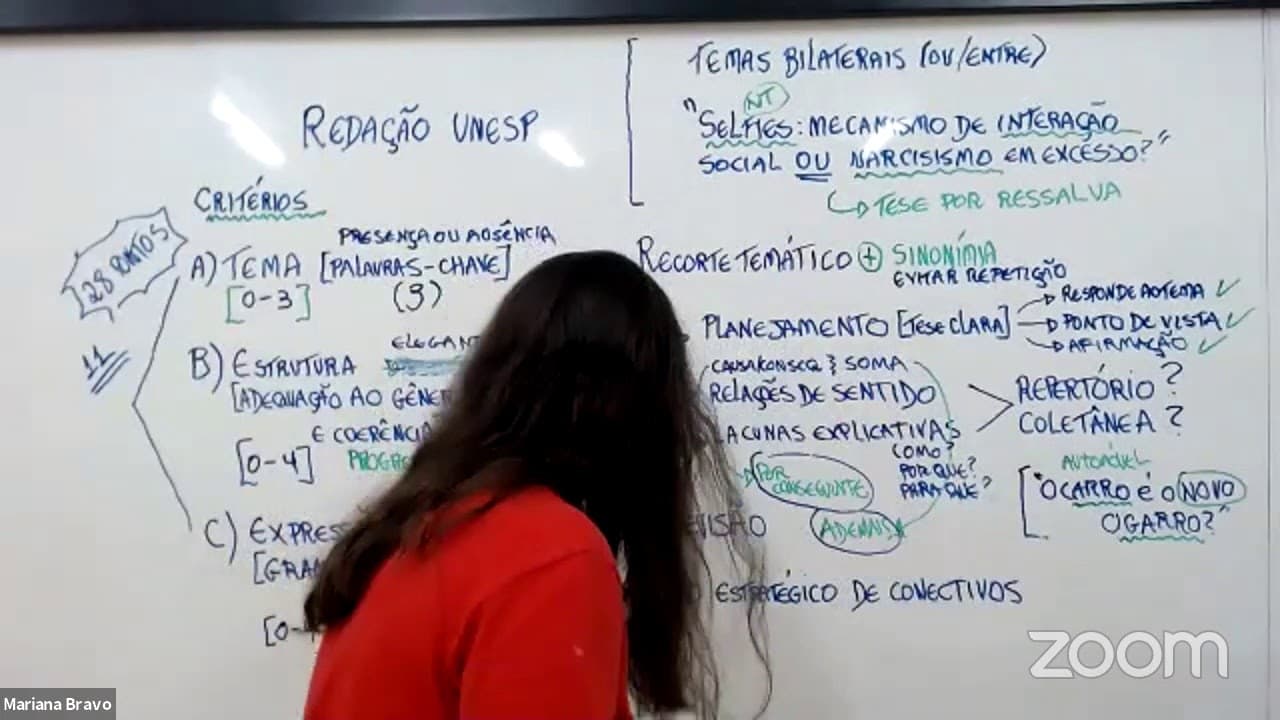 REDAÇÃO UNESP
CRITÉRIOS
28 PONTOS
11
PRESENÇA OU AUSÊNCIA
A) TEMA [PALAVRAS-CHAVE]
[0-3]
B) ESTRUTURA
ELEGAN
[ADEQUAÇÃO AO GÊNE
E COERÊNCIA
[0-4]
C) EXPRES
[GRA
[0-
TEMAS BILATERAIS (OU/ENTRE)
NT
"SELFIES: MECANISMO DE INTERAÇÃO
SOCIAL OU NARCISISMO EM EXCESSO?"
TESE POR RESSALVA
RECORTE TEMÁTICO + SINONÍMIA
EVITAR REPETIÇÃO
PLANEJAMENTO [TESE CLARA]
RESPONDE AO TEMA
PONTO DE VISTA
AFIRMAÇÃO
SOMA
RELAÇÕES DE SENTIDO
LACUNAS EXPLICATIVAS
COMO?
POR QUE?
PARA QUE?
REPERTÓRIO?
COLETÂNEA?
POR
CONSEGUINTE
EVISÃO
ADEMAIS
"O CARRO É O NOVO
CIGARRO?"
ESTRATÉGICO DE CONECTIVOS
zoom
Mariana Bravo